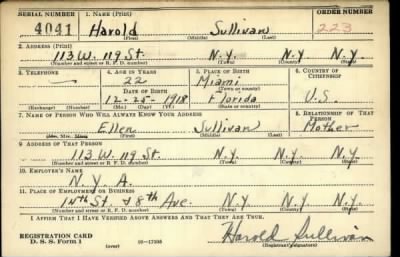 SERIAL NUMBER 1. NAME (Print) ORDER NUMBER
4041 Harold Sullivan 223
(First) (Middle) (Last)
2. ADDRESS (Print)
113 W. 119 St. N.Y. N.Y. N.Y
(Number and street or R. F. D. number) (Town) (County) (State)
3. TELEPHONE 4. AGE IN YEARS 5. PLACE OF BIRTH 6. COUNTRY OF CITIZENSHIP
— 22 Miami
DATE OF BIRTH (Town or county)
12-25-1918 Florida U.S.
(Exchange) (Number) (Mo.) (Day) (Yr.) (State or country)
7. NAME OF PERSON WHO WILL ALWAYS KNOW YOUR ADDRESS 8. RELATIONSHIP OF THAT PERSON
Ellen Sullivan Mother
(Mr., Mrs., Miss) (First) (Middle) (Last)
9. ADDRESS OF THAT PERSON
113 W. 119 St. N.Y. N.Y. N.Y.
(Number and street or R. F. D. number) (Town) (County) (State)
10. EMPLOYER'S NAME
N.Y.A.
11. PLACE OF EMPLOYMENT OR BUSINESS
14th St. & 8th Ave N.Y. N.Y. N.Y.
(Number and street or R. F. D. number) (Town) (County) (State)
I AFFIRM THAT I HAVE VERIFIED ABOVE ANSWERS AND THAT THEY ARE TRUE.
REGISTRATION CARD
D. S. S. Form 1 (over) 16-17105 Harold Sullivan
(Registrant's signature)